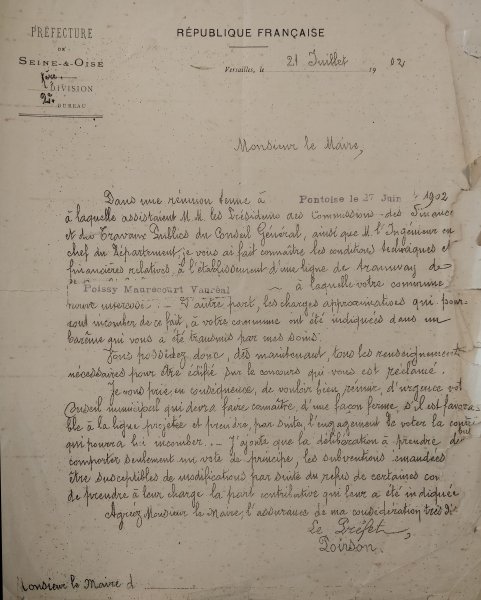 PRÉFECTURE
DE
SEINE-&-OISE
1ère
DIVISION
2e
BUREAU
RÉPUBLIQUE FRANÇAISE
Versailles, le 21 Juillet 1902
Monsieur le Maire,
Dans une réunion tenue à Pontoise le 27 Juin 1902
à laquelle assistaient M.M. les Présidents des Commissions des Finance
et des Travaux Publics du Conseil Général, ainsi que M. l'Ingénieur en
chef du Département, je vous ai fait connaître les conditions techniques et
financières relatives à l'établissement d'une ligne de tramway de
Poissy Maurecourt Vauréal à laquelle votre commune
D'autre part, les charges approximatives qui pour-
ront incomber de ce fait, à votre commune ont été indiquées dans un
barême qui vous a été transmis par mes soins.
Vous possédez donc, dès maintenant, tous les renseignements
nécessaires pour être édifié sur le concours qui vous est réclamé.
Je vous prie, en conséquence, de vouloir bien réunir, d'urgence vot
Conseil municipal qui devra faire connaître, d'une façon ferme, s'il est favora
ble à la ligne projetée et prendre, par suite, l'engagement de voter la contri
qui pourra lui incomber. J'ajoute que la délibération à prendre de
comporter seulement un vote de principe, les subventions
être susceptibles de modifications par suite du refus de certaines co
de prendre à leur charge la part contributive qui leur a été indiquée
Agréez Monsieur le Maire, l'assurance de ma considération très di
Le Préfet,
Poirson.
Monsieur le Maire d